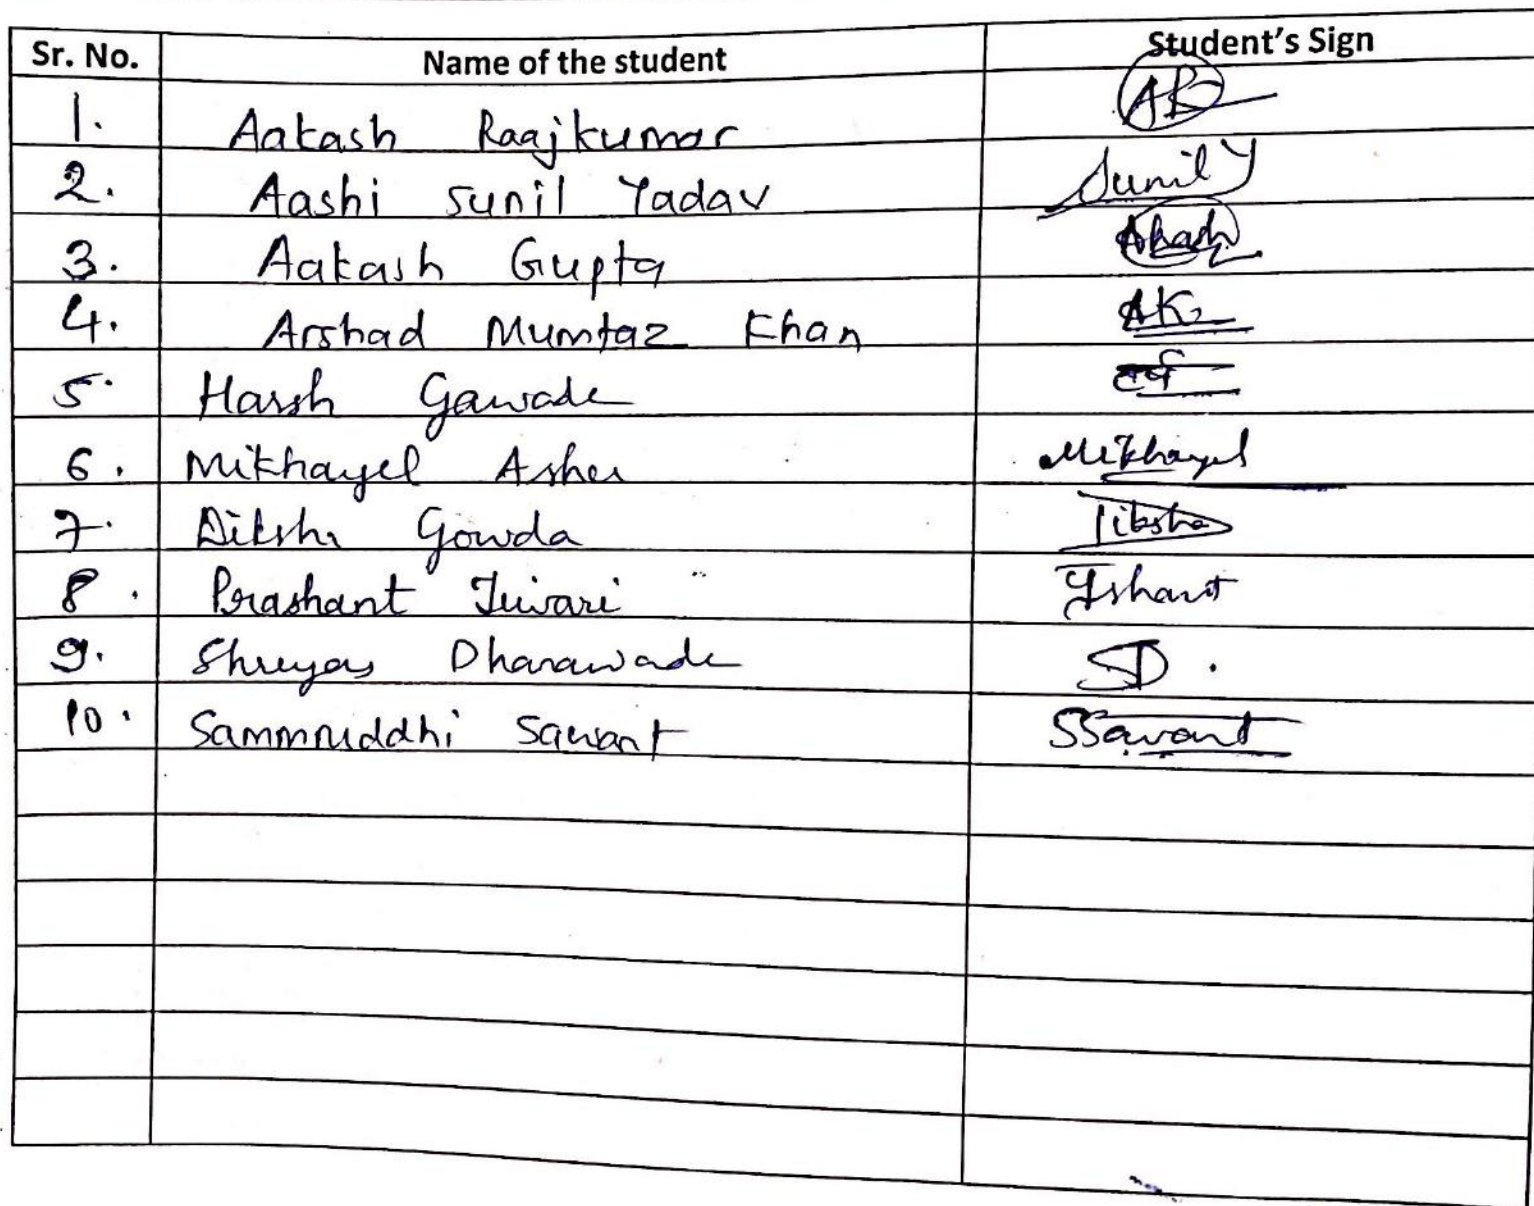 Sr. No. Name of the student Student's Sign
1. Aakash Raajkumar AR
2. Aashi Sunil Yadav Sunil Y
3. Aakash Gupta Akash
4. Arshad Mumtaz Khan AK
5. Harsh Gawade
6. Mikhayel Asher Mikhayel
7. Diksha Gowda Diksha
8. Prashant Tiwari
9. Shreyas Dharawade SD.
10. Sammruddhi Sawant SSawant